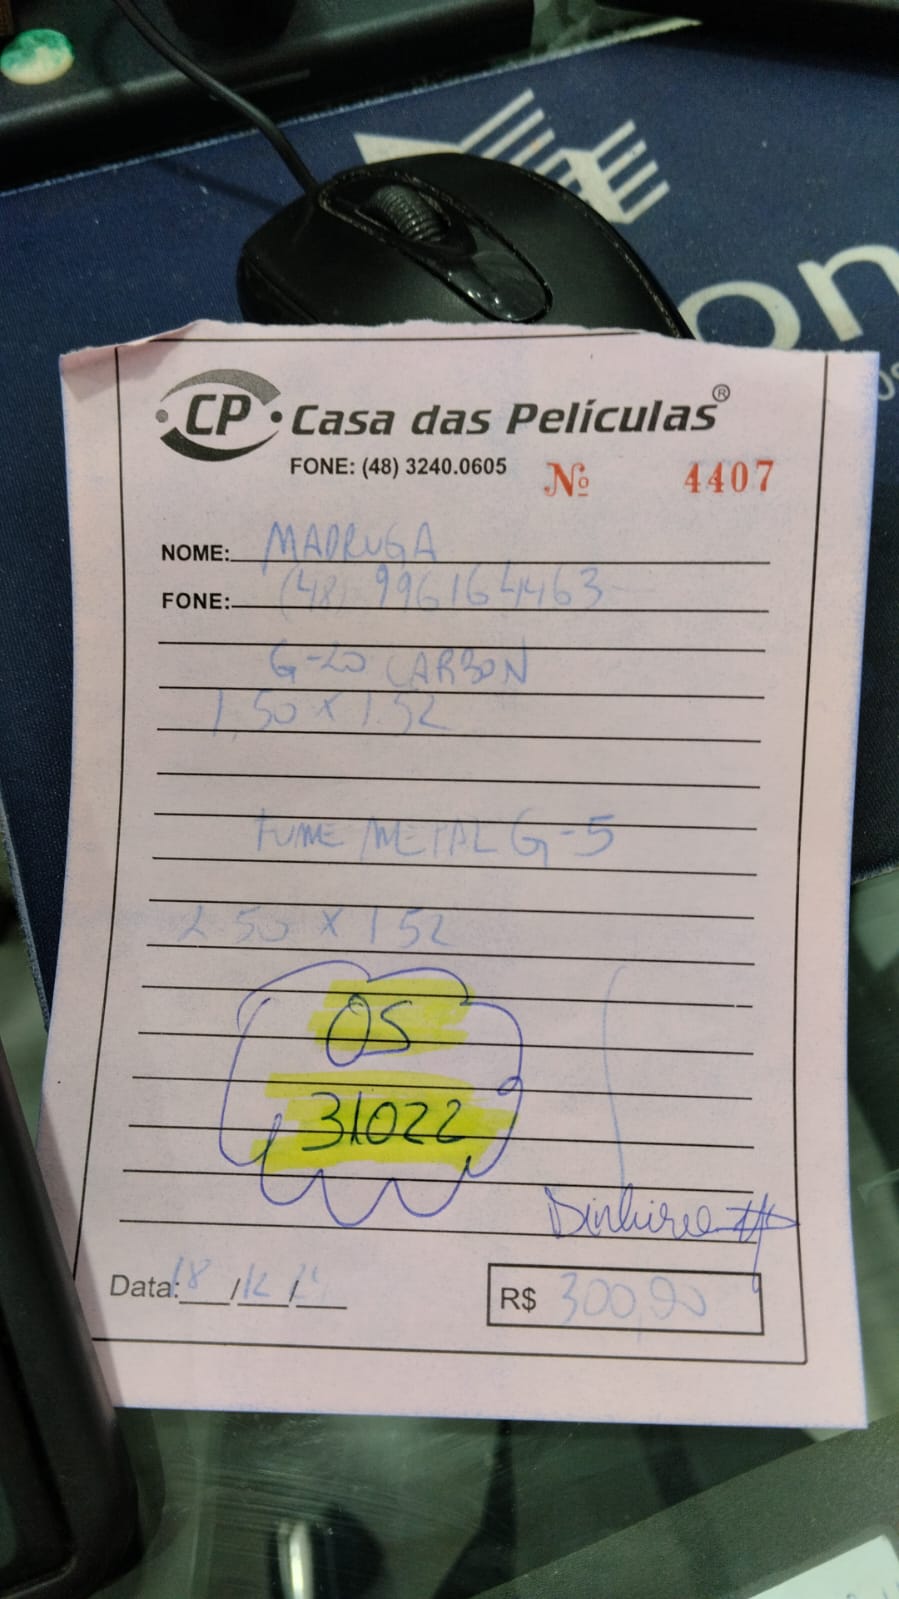 CP Casa das Películas®
FONE: (48) 3240.0605 Nº 4407
NOME: MADRUGA
FONE: (48) 996164463
G-20 CARBON
1,50 x 1.52
FUME METAL G-5
2 50 x 1 52
OS
31022
Dinheiro
Data: 18/12/
R$ 300,90
on